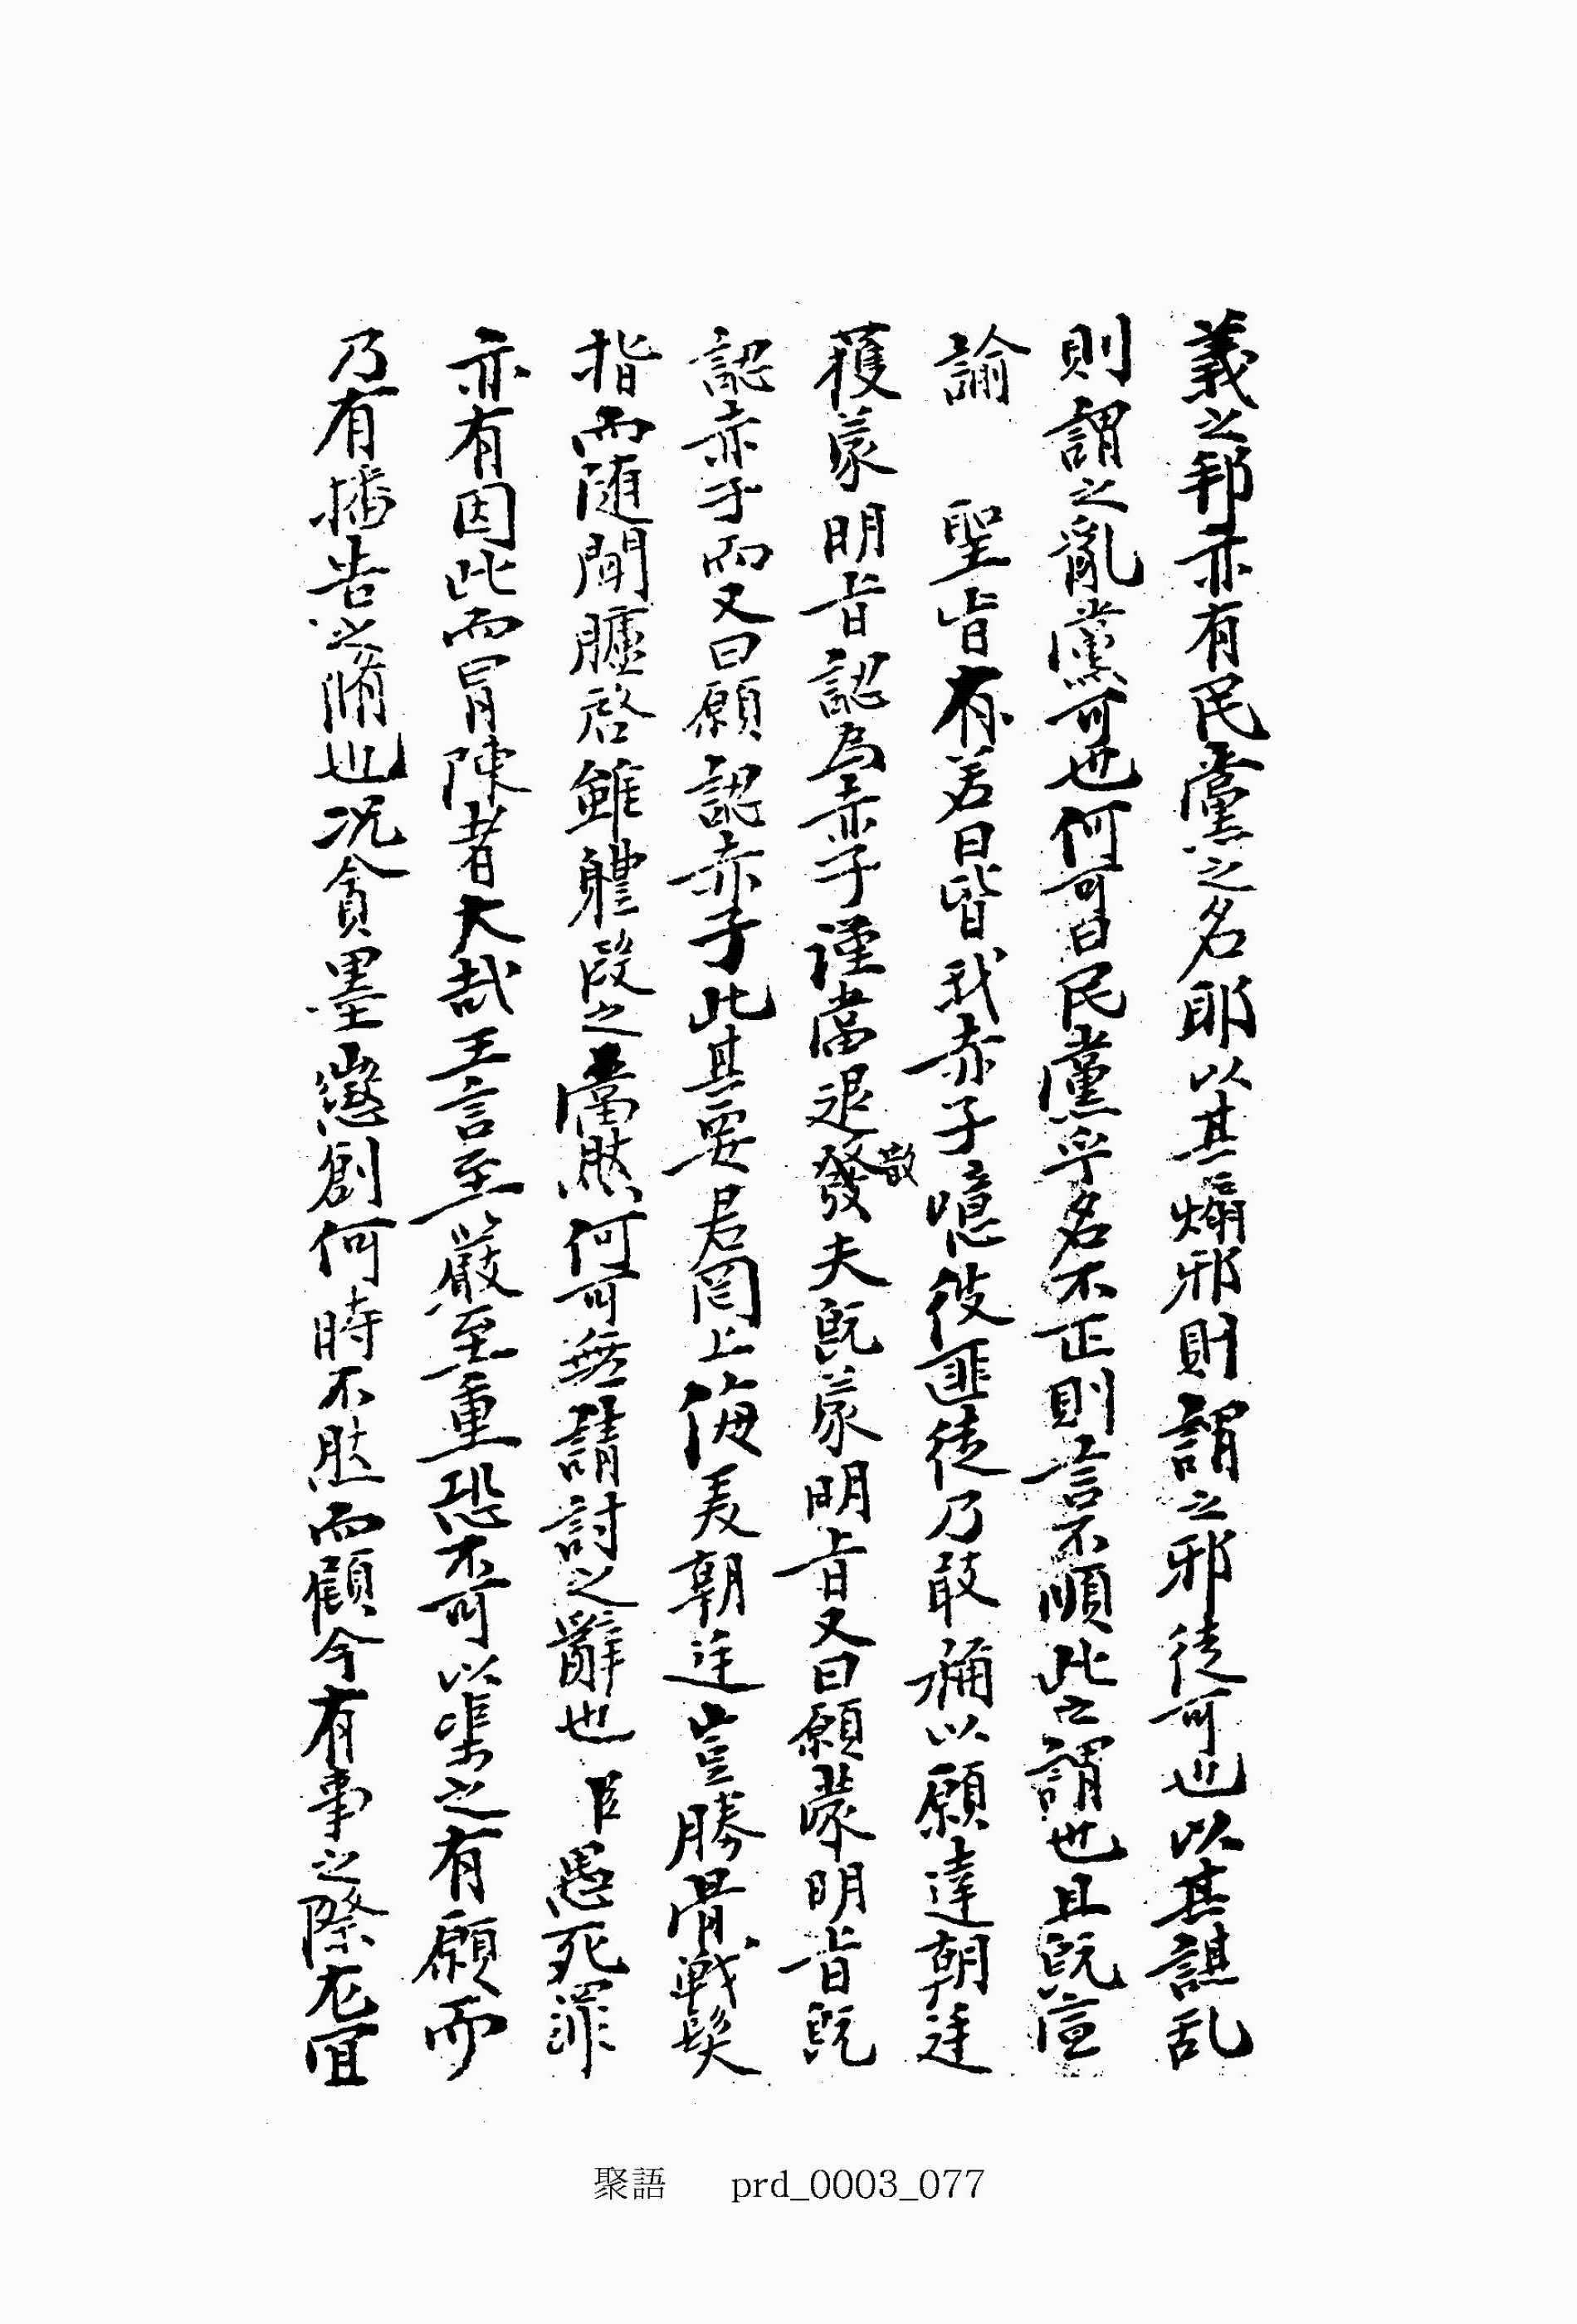 義之邦亦有民黨之名耶以其煽邪則謂之邪徒可也以其謀乱
則謂之亂黨可也何可曰民黨乎名不正則言不順此之謂也且既宣
諭　聖旨有若曰皆我赤子噫彼匪徒乃敢稱以願達朝廷
獲蒙明旨認爲赤子謹當退散發夫既蒙明旨又曰願蒙明旨既
認赤子而又曰願認赤子此其要君罔上侮美朝廷豈勝骨戰髮
指而随聞臚啓雖體段之當然何可無請討之辭也臣愚死罪
亦有因此而冒陳者大哉王言至嚴至重恐不可以渠之有願而
乃有播告之脩也况貪墨懲創何時不然而顧今有事之際尤宜
聚語　prd_0003_077